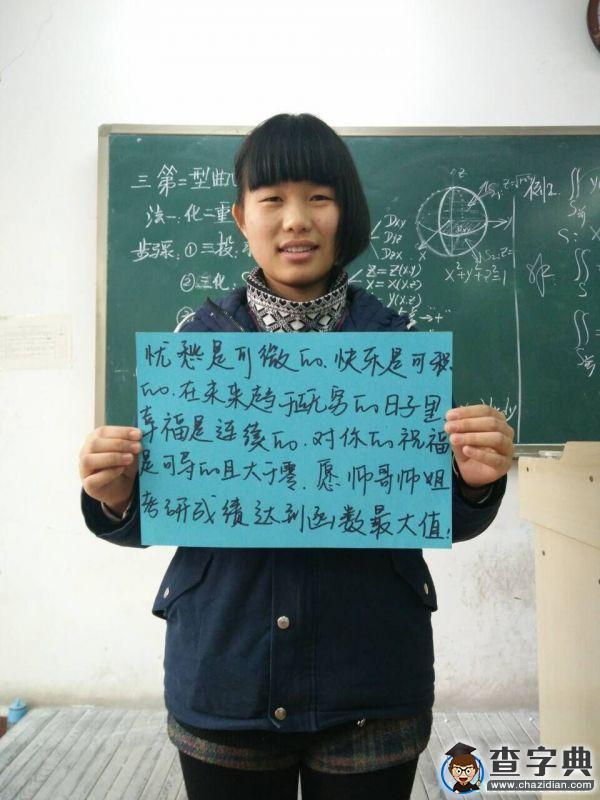 三.第二型曲
法一.化二重
步骤:①三投:
Dxy
Dyz
Dzx
②三化:
z=z(x,y)
x=x(y,z)
y(x,z)
x²+y²+z²=1
Dxy
例2.
忧愁是可微的、快乐是可积
的、在未来趋于正无穷的日子里
幸福是连续的、对你的祝福
是可导的且大于零、愿师哥师姐
考研成绩达到函数最大值!
查字典
www.chazidian.com